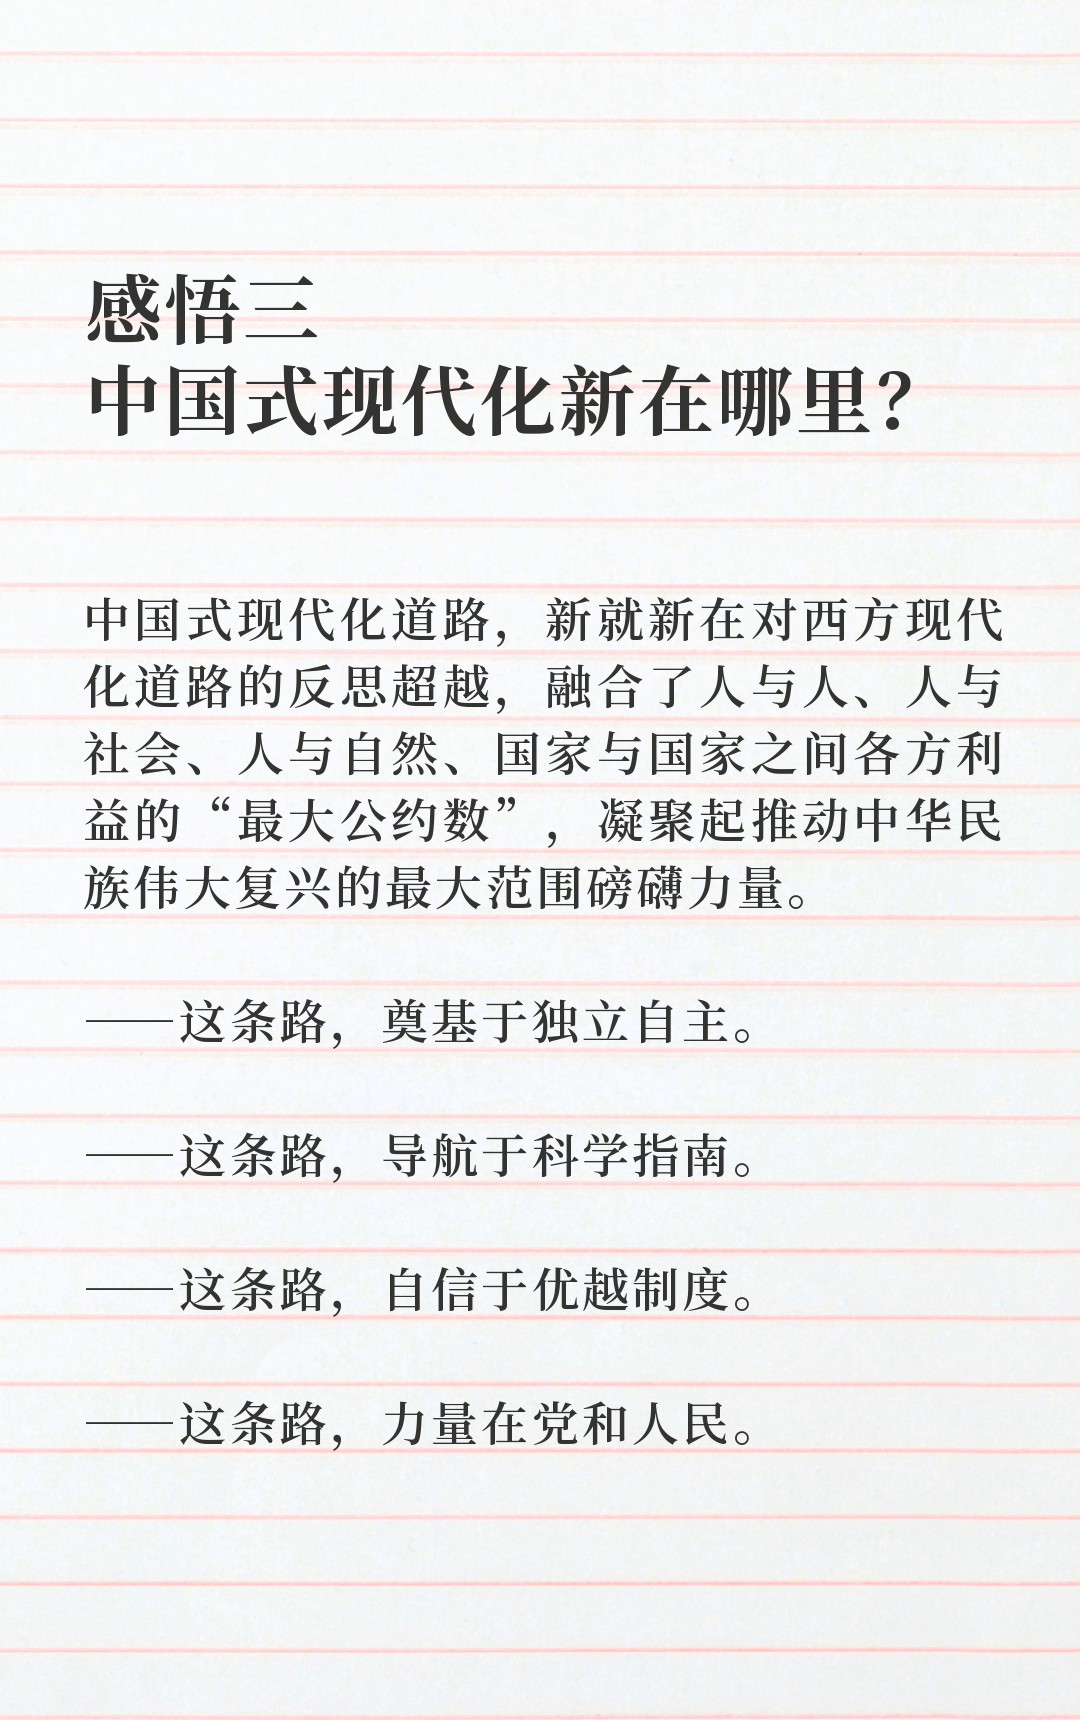 感悟三
中国式现代化新在哪里？
中国式现代化道路，新就新在对西方现代
化道路的反思超越，融合了人与人、人与
社会、人与自然、国家与国家之间各方利
益的“最大公约数”，凝聚起推动中华民
族伟大复兴的最大范围磅礴力量。
——这条路，奠基于独立自主。
——这条路，导航于科学指南。
——这条路，自信于优越制度。
——这条路，力量在党和人民。